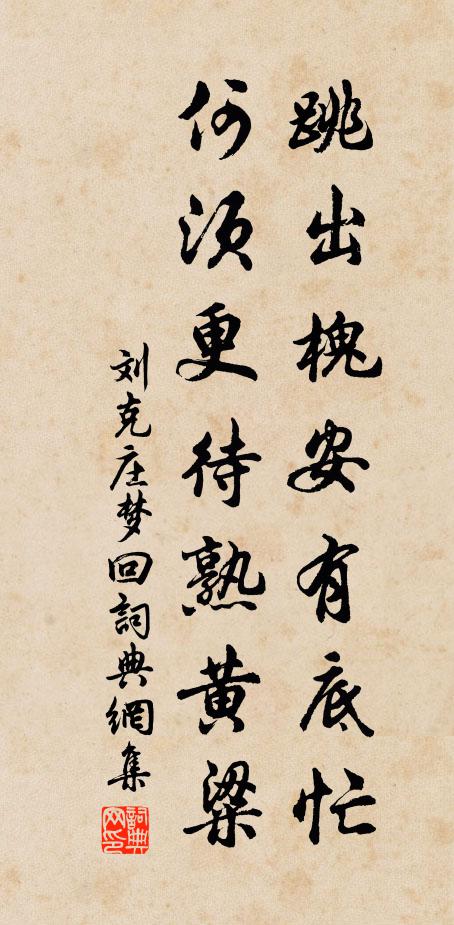 跳出槐安有底忙
何须更待熟黄粱
刘克庄梦回詞典網集
詞典网印